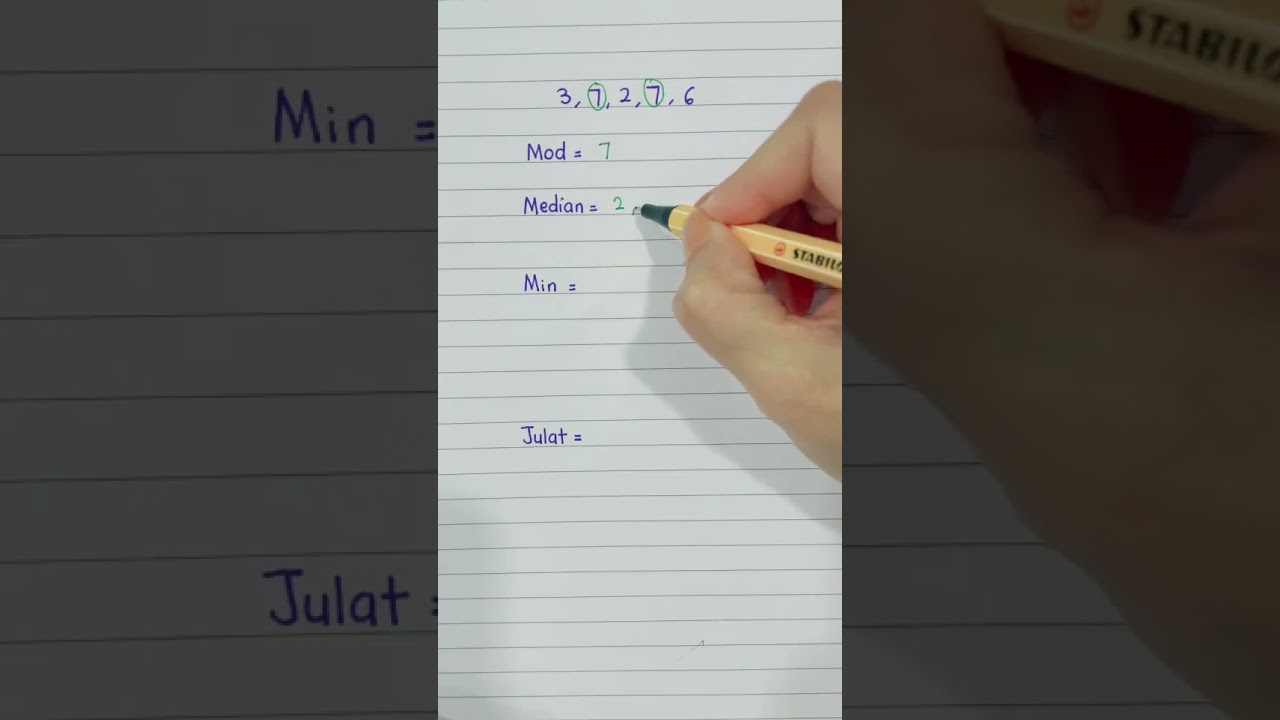 3, 7, 2, 7, 6
Mod = 7
Median = 2,
Min =
Julat =
STABILO
Min =
Julat =
STABILO